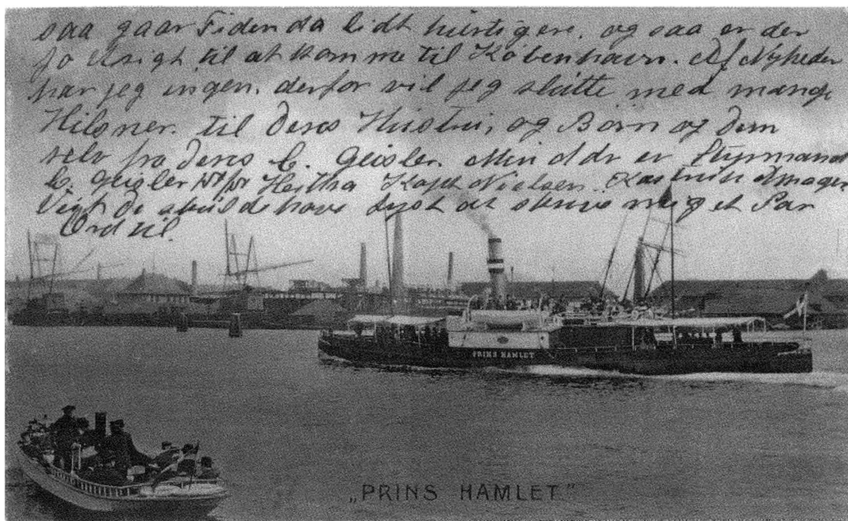 saa gaar Tiden da lidt hurtigere, og saa er der
jo Udsigt til at komme til København. Af Nyheder
har jeg ingen, derfor vil jeg slutte med mange
Hilsner. til Deres Hustru, og Børn og dem
selv fra Deres C. Geisler. Min ddr er Styrmand
C. Geisler Hertha Kapt Nielsen. Kastrup Amager
De skulde have Lyst at skrive mig et Par
Ord til.
PRINS HAMLET
„PRINS HAMLET"